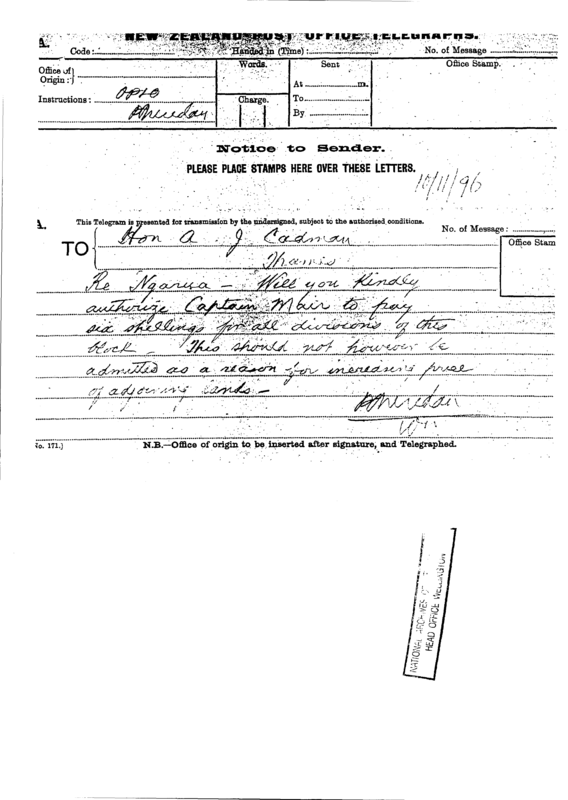 NEW ZEALAND POST OFFICE TELEGRAPHS.
A.
Code: Handed in (Time): No. of Message
Office of Origin: Words. Sent Office Stamp.
At m.
Instructions: OPSO Charge. To
By
Notice to Sender.
PLEASE PLACE STAMPS HERE OVER THESE LETTERS.
10/11/96
A. This Telegram is presented for transmission by the undersigned, subject to the authorised conditions.
No. of Message:
TO Hon A J Cadman Office Stam
Thames
Re Ngarua - Will you Kindly
authorize Captain Mair to pay
six shillings for all divisions of this
block - This should not however be
admitted as a reason for increasing price
of adjoining lands -
PSheridan
Wn
No. 171.] N.B.—Office of origin to be inserted after signature, and Telegraphed.
NATIONAL ARCHIVES
HEAD OFFICE WELLINGTON